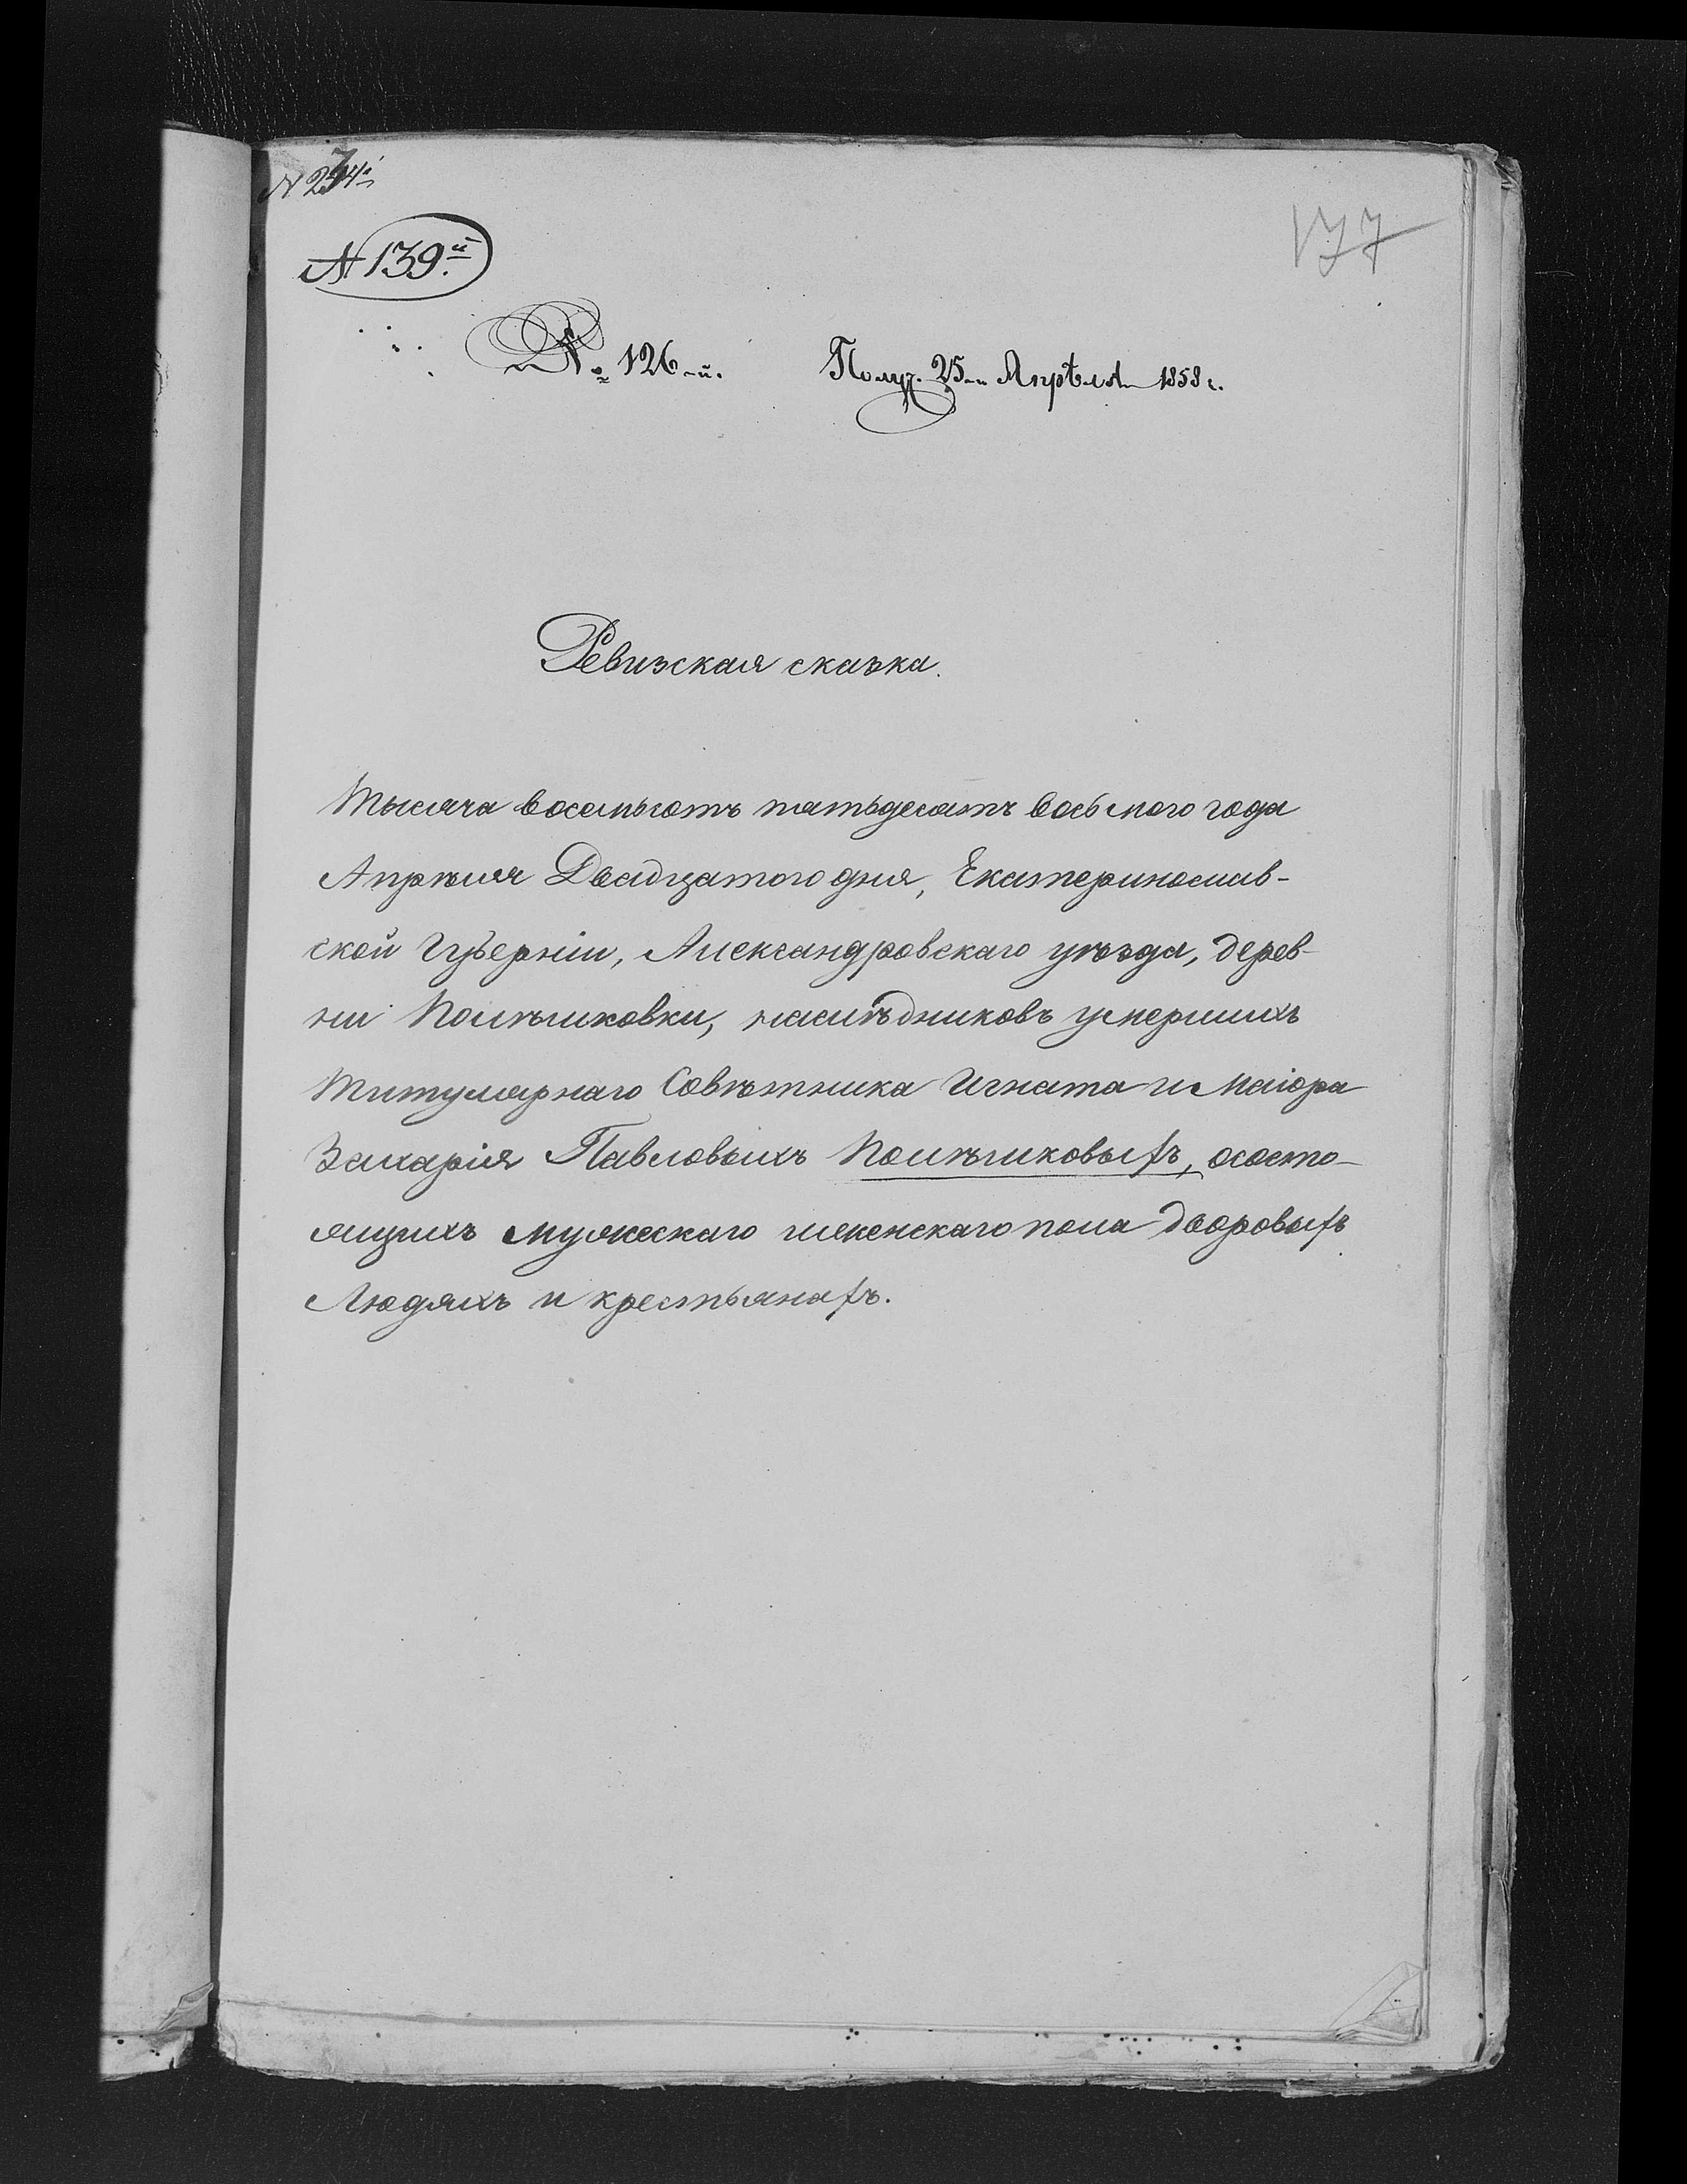 177
№ 139й
№ 126-й. Получ. 25-го Апрѣля 1858 г.
Ревизская сказка.
Тысяча восемьсотъ пятьдесятъ восьмого года
Апрѣля Двадцатого дня, Екатеринослав-
ской Губерніи, Александровскаго уѣзда, дерев-
ни Полѣшковки, наслѣдниковъ умершихъ
Титулярнаго Совѣтника Игната и Маіора
Захарія Павловыхъ Полѣшковыхъ, ососто-
ящихъ мужескаго и женскаго пола дворовыхъ
Людяхъ и крестьянахъ.